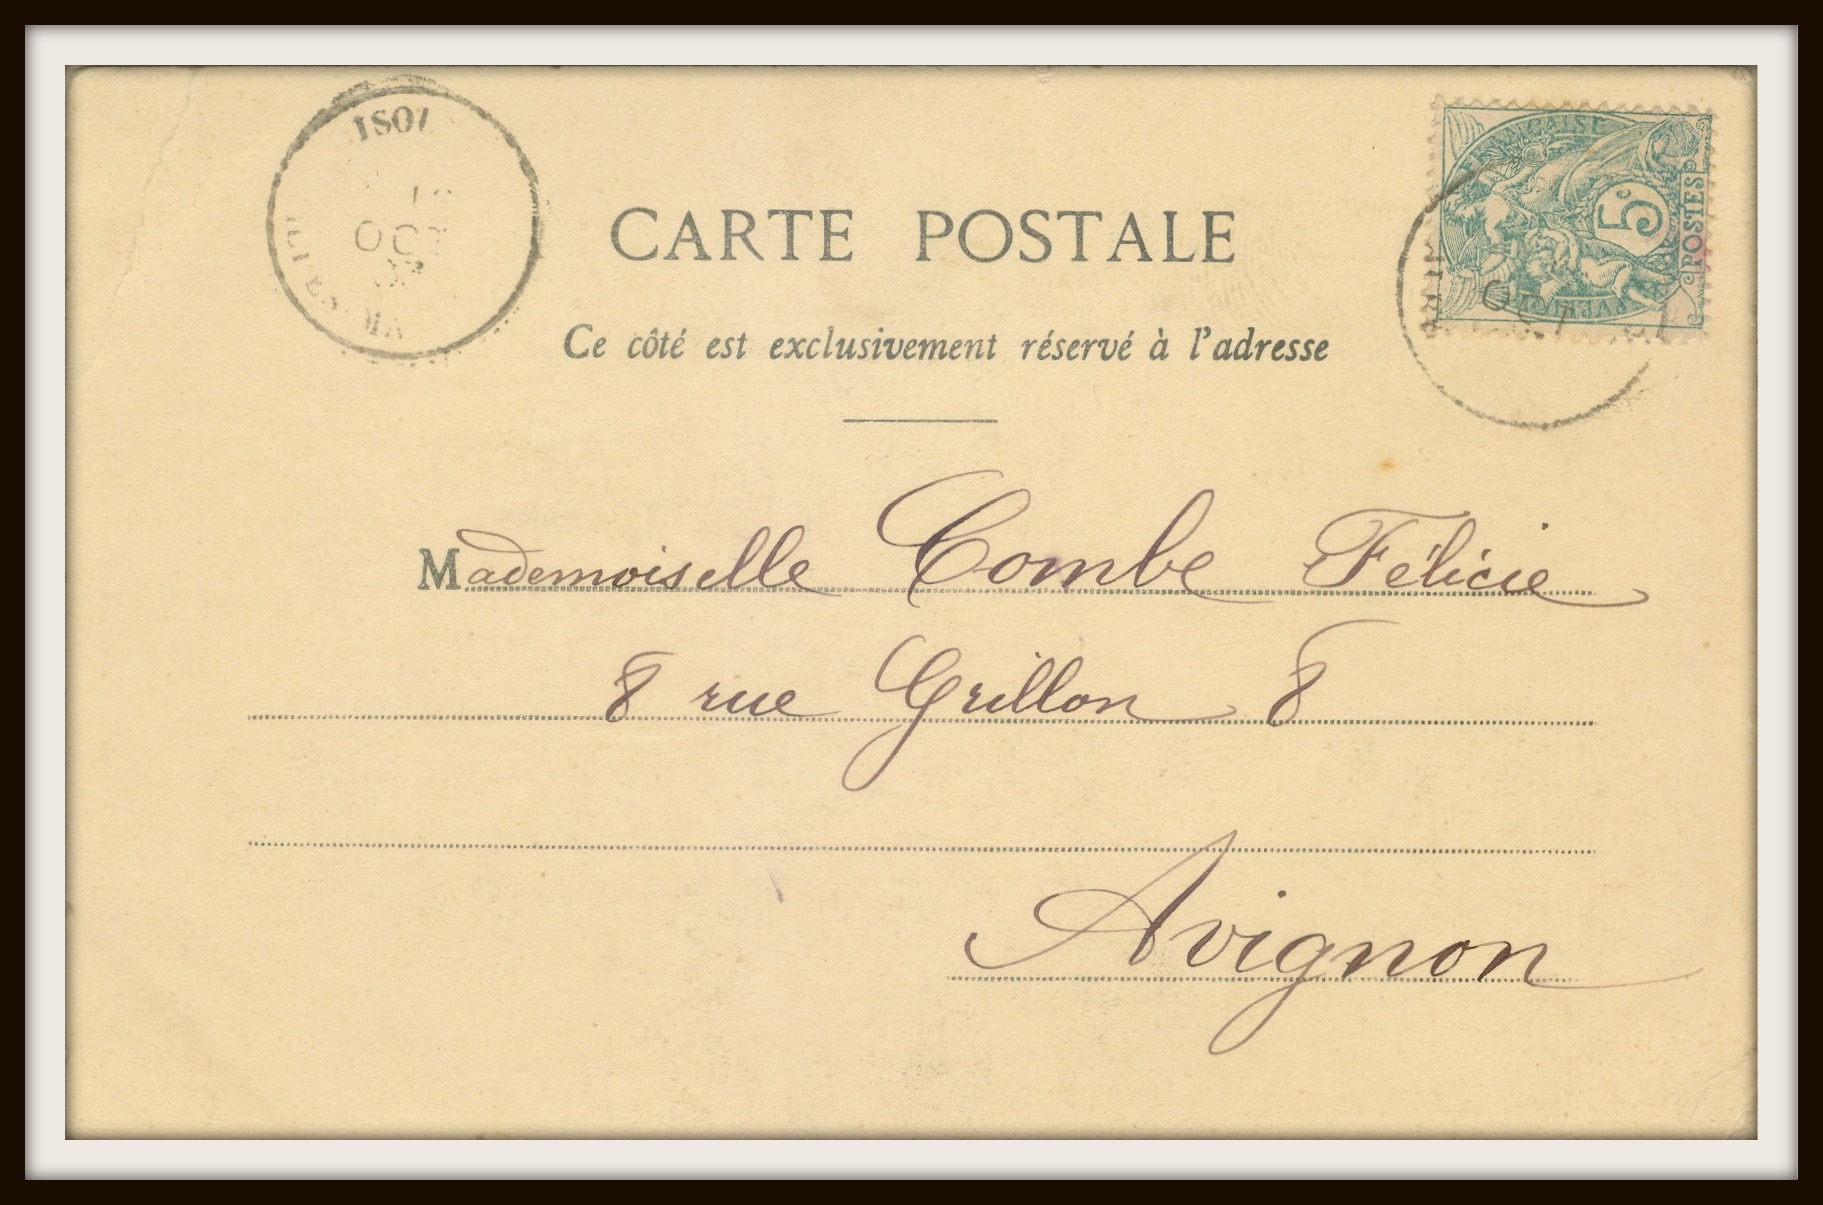 CARTE POSTALE
FRANÇAISE
5c
POSTES
OCT
OCT
Ce côté est exclusivement réservé à l'adresse
Mademoiselle Combe Félicie
8 rue Grillon 8
Avignon